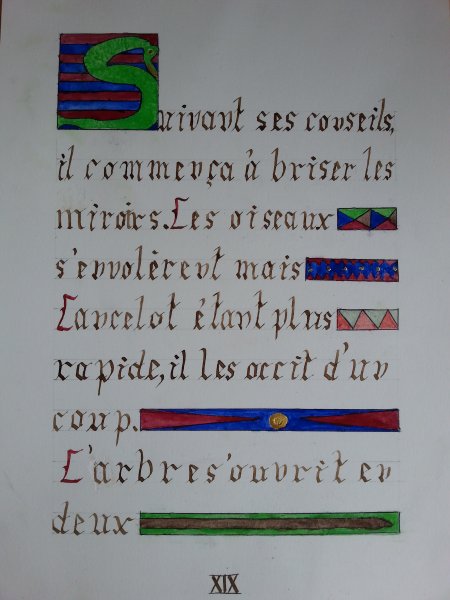 Suivant ses conseils,
il commença à briser les
miroirs. Les oiseaux
s'envolèrent mais
Lancelot étant plus
rapide, il les occit d'un
coup.
L'arbre s'ouvrit en
deux
XIX